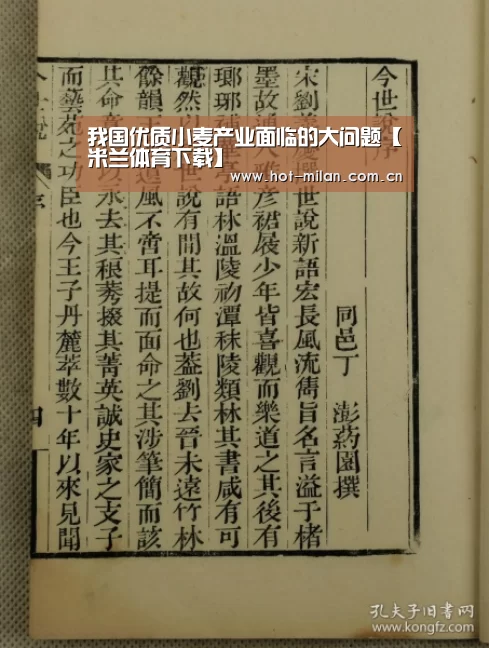 我国优质小麦产业面临的大问题【
米兰体育下载】
www.hot-milan.com.cn
今世說序
同邑丁 澎葯園撰
宋劉義慶譔世說新語宏長風流雋旨名言溢于楮
墨故通人雅彥裾屐少年皆喜觀而樂道之其後有
瑯琊補 語林溫陵初潭秣陵類林其書咸有可
觀然以 世說有間其故何也葢劉去晉未遠竹林
餘韻王 風不啻耳提而面命之其涉筆簡而該
其命意 以永去其稂莠掇其菁英誠史家之支子
而藝苑之功臣也今王子丹麓萃數十年以來見聞
孔夫子旧书网
kongfz.com